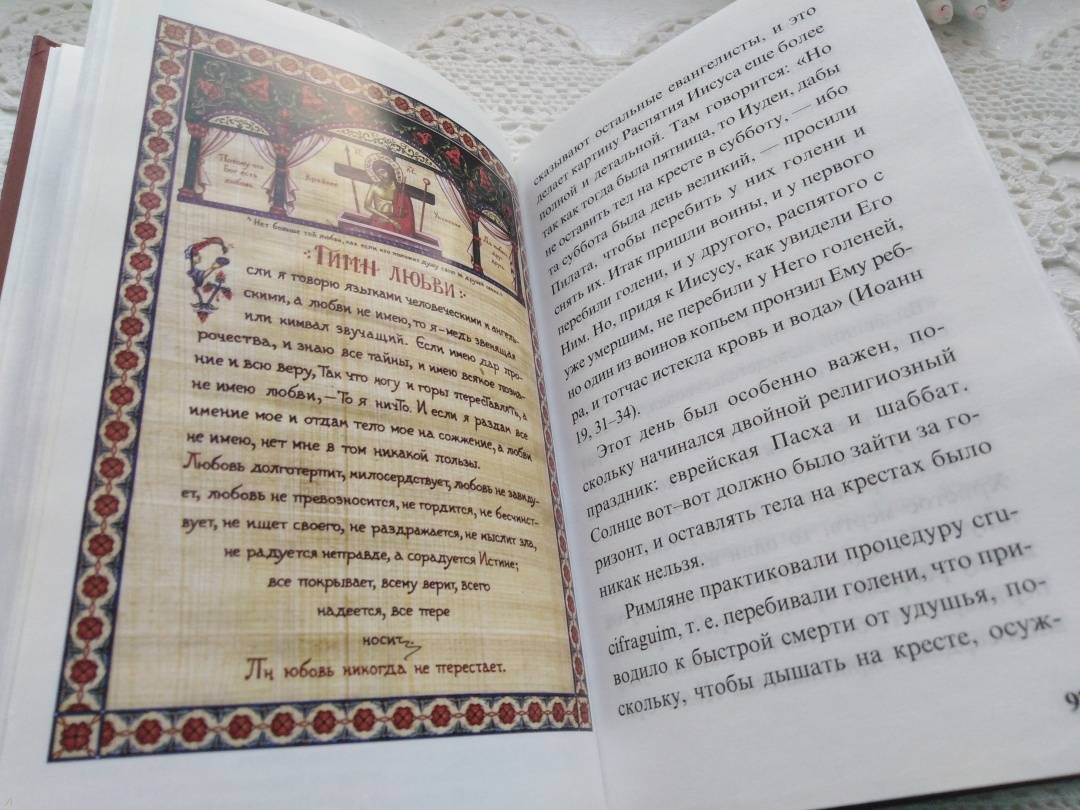 Потому что
Бог есть
любовь
IC
XC
Крайнее
Уничижение
Нет больше той любви, как если кто положит душу свою за друзей своих.
Гимн любви
Если я говорю языками человеческими и ангель-
скими, а любви не имею, то я-медь звенящая
или кимвал звучащий. Если имею дар про-
рочества, и знаю все тайны, и имею всякое позна-
ние и всю веру, Так что могу и горы переставлять, а
не имею любви,-То я ничто. И если я раздам все
имение мое и отдам тело мое на сожжение, а любви
не имею, нет мне в том никакой пользы.
Любовь долготерпит, милосердствует, любовь не завиду-
ет, любовь не превозносится, не гордится, не бесчинст-
вует, не ищет своего, не раздражается, не мыслит зла,
не радуется неправде, а сорадуется Истине;
все покрывает, всему верит, всего
надеется, все пере
носит
Ли юбовь никогда не перестает.
сказывают остальные евангелисты, и это
делает картину Распятия Иисуса еще более
полной и детальной. Там говорится: «Но
так как тогда была пятница, то Иудеи, дабы
не оставить тел на кресте в субботу, — ибо
та суббота была день великий, — просили
Пилата, чтобы перебить у них голени и
снять их. Итак пришли воины, и у первого
перебили голени, и у другого, распятого с
Ним. Но, придя к Иисусу, как увидели Его
уже умершим, не перебили у Него голеней,
но один из воинов копьем пронзил Ему реб-
ра, и тотчас истекла кровь и вода» (Иоанн
19, 31–34).
Этот день был особенно важен, по-
скольку начинался двойной религиозный
праздник: еврейская Пасха и шаббат.
Солнце вот–вот должно было зайти за го-
ризонт, и оставлять тела на крестах было
никак нельзя.
Римляне практиковали процедуру cru-
cifraguim, т. е. перебивали голени, что при-
водило к быстрой смерти от удушья, по-
скольку, чтобы дышать на кресте, осуж-